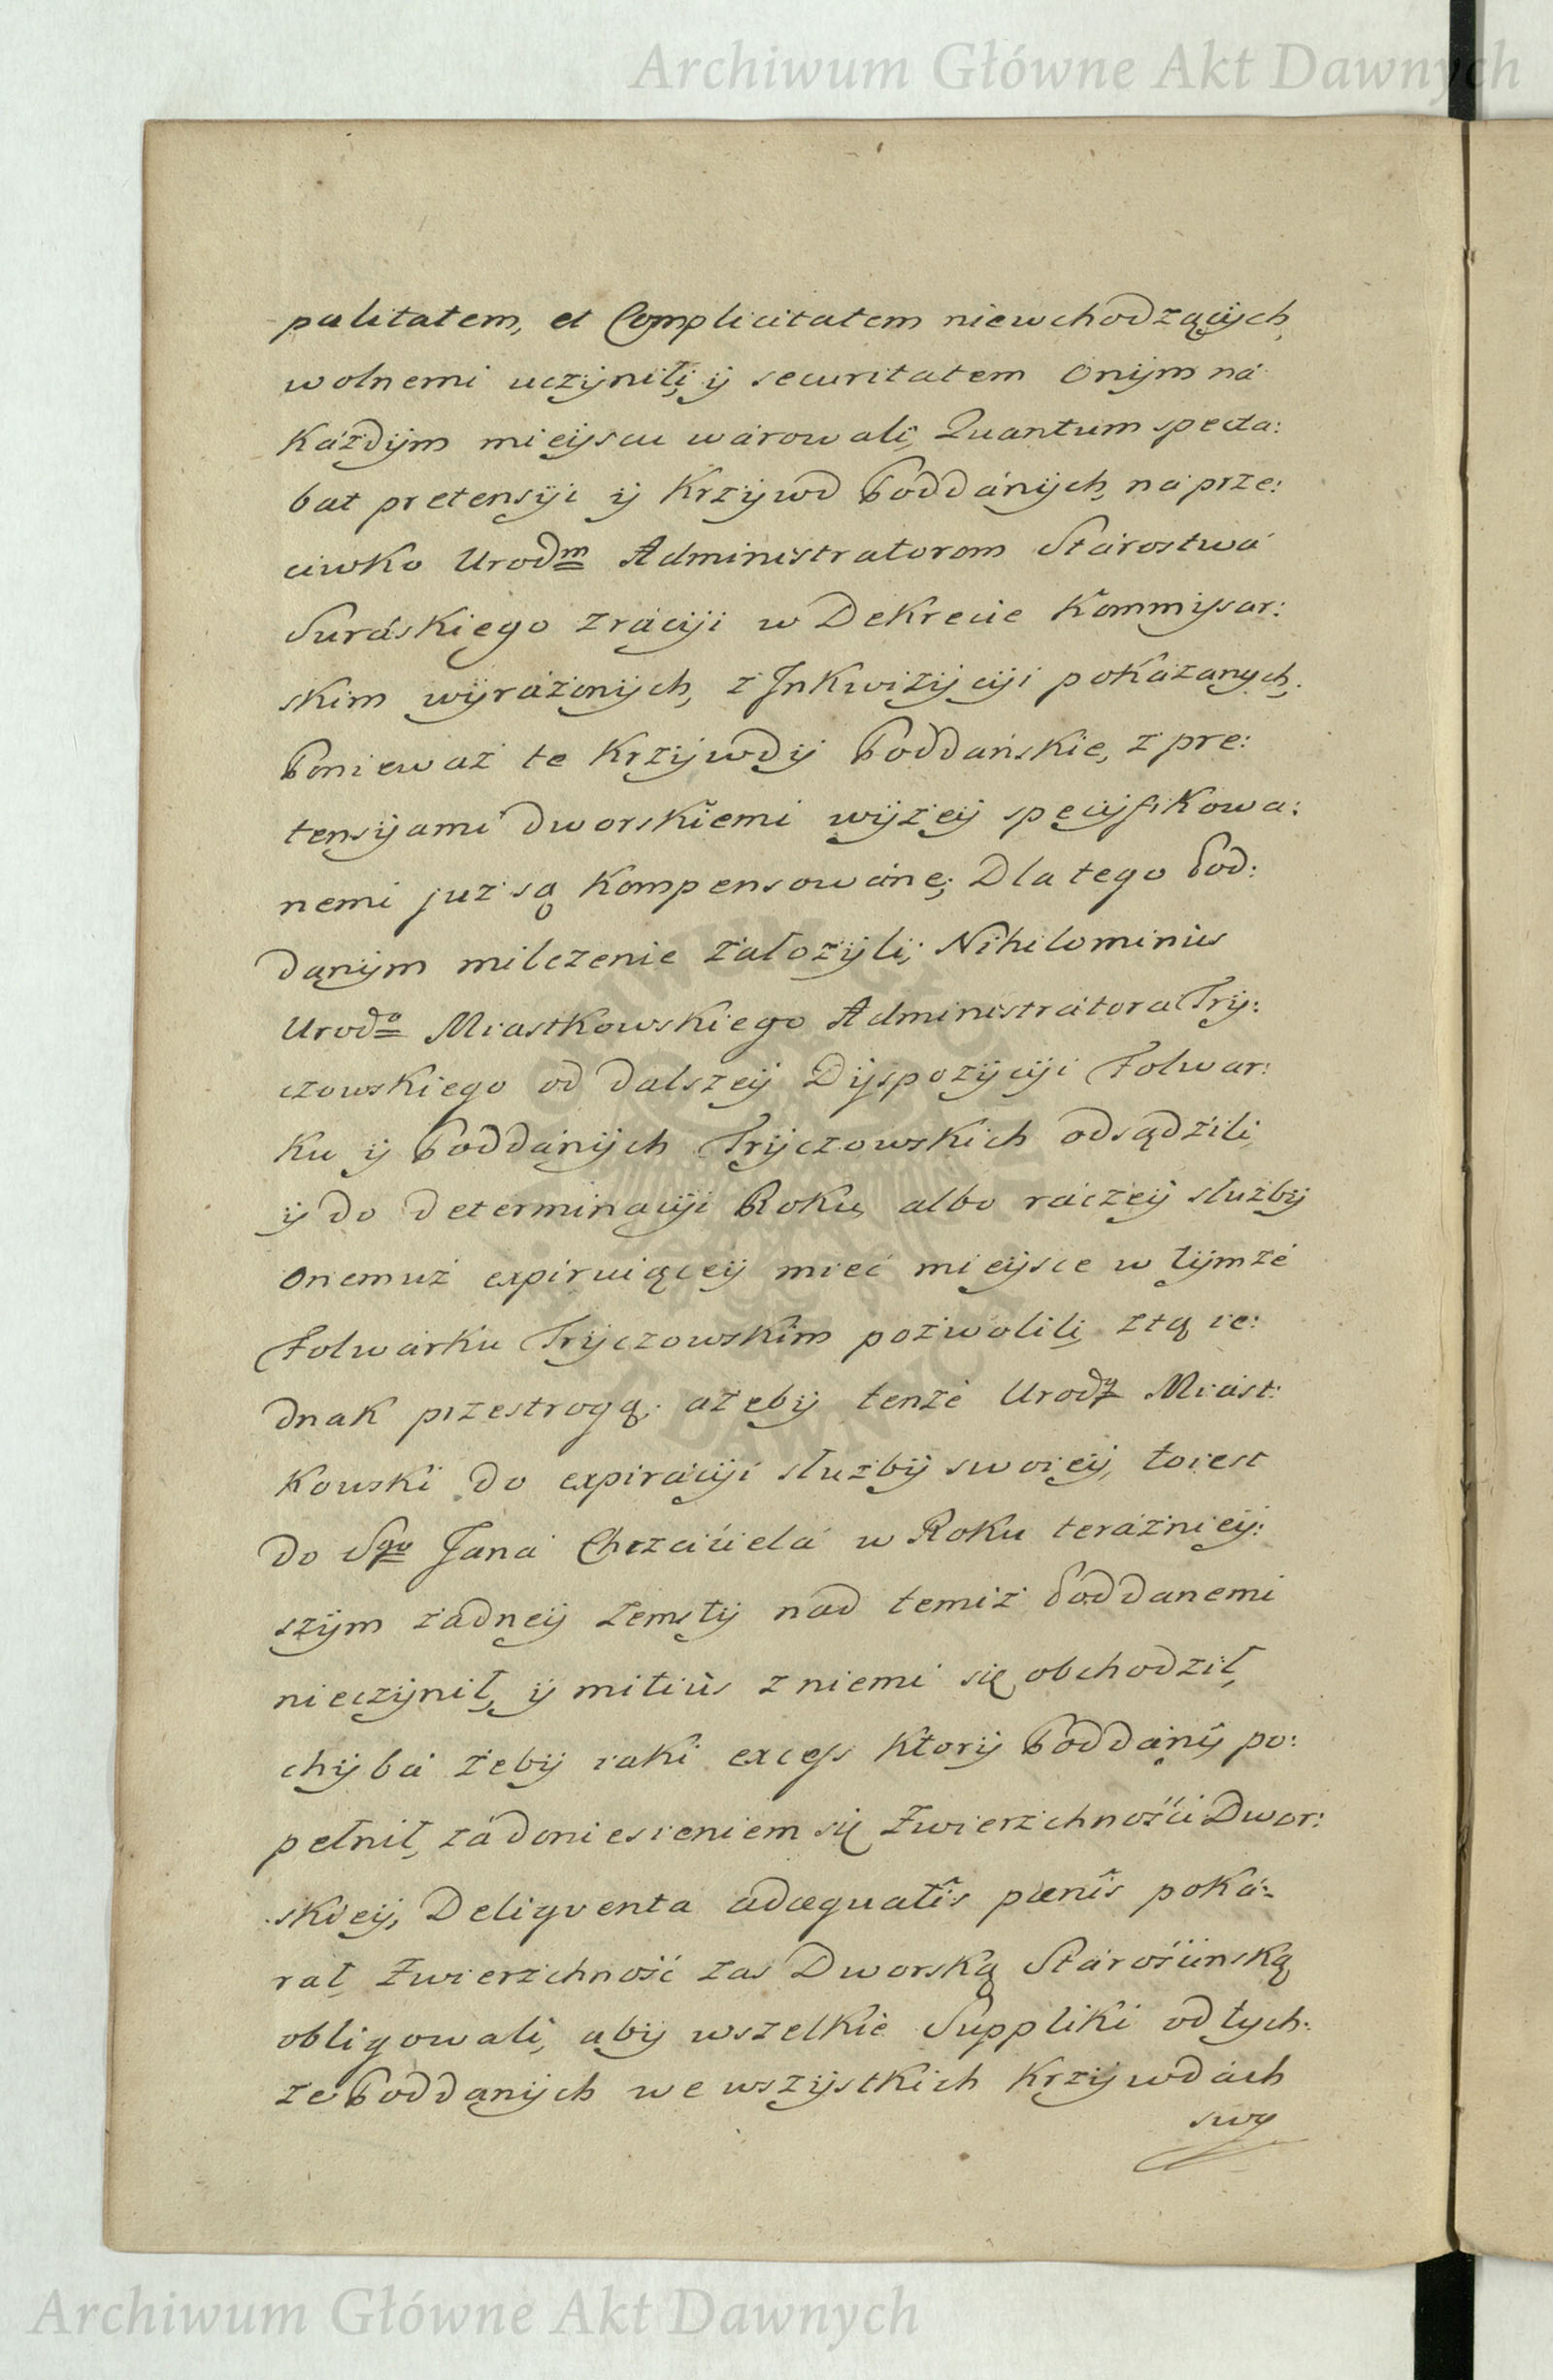 Archiwum Główne Akt Dawnych
palitatem, et Complicitatem niewchodzącÿch,
wolnemi uczÿnili, ÿ securitatem Onÿm ná
Káżdÿm mieÿscu wárowali, Quantum specta:
bat pretensÿi ÿ Krzÿwd Poddánÿch, ná prze:
ciwko Urodm Administratorom Stárostwá
Suráskiego zráciji w Dekrecie Kommÿsar:
skim wÿrażonÿch, z Inkwizÿcÿi pokázanych.
Ponieważ te Krzÿwdÿ Poddáńskie, z pre:
tensÿami dworskiemi wÿżeÿ specÿfikowa:
nemi już są Kompensowáne; Dla tego Pod:
danÿm milczenie záłożÿli; Nihilominus
Urodo Miastkowskiego Administrátora Trÿ:
czowskiego od dalszeÿ Dÿspozÿcÿi Folwar:
ku ÿ Poddánÿch Trÿczowskich odsądzili,
ÿ do determinacÿi Roku, albo ráczeÿ służbÿ
Onemuż expiruiąceÿ mieć mieÿsce w tÿmże
Folwárku Trÿczowskim pozwolili, ztą ie:
dnak przestrogą; ażebÿ tenże Urody Miást:
Kowski do expirácÿi służbÿ swoieÿ, toiest
do Sgo Jana Chrzciciela w Roku teráźnieÿ:
szÿm żadneÿ zemstÿ nad temiż Poddanemi
nieczÿnił, ÿ mitiùs z niemi się obchodził,
chÿbá żebÿ iaki excess Ktorÿ Poddánÿ po:
pełnił, zá doniesieniem się Zwierzchności Dwor:
skieÿ, Deliqventa adæquatîs pænîs poká:
rał, Zwierzchność zas Dworską Stárościnską
obligowali, abÿ wszelkie Suppliki od tych:
że Poddanÿch we wszÿstkich Krzÿwdách
swy
Archiwum Główne Akt Dawnych